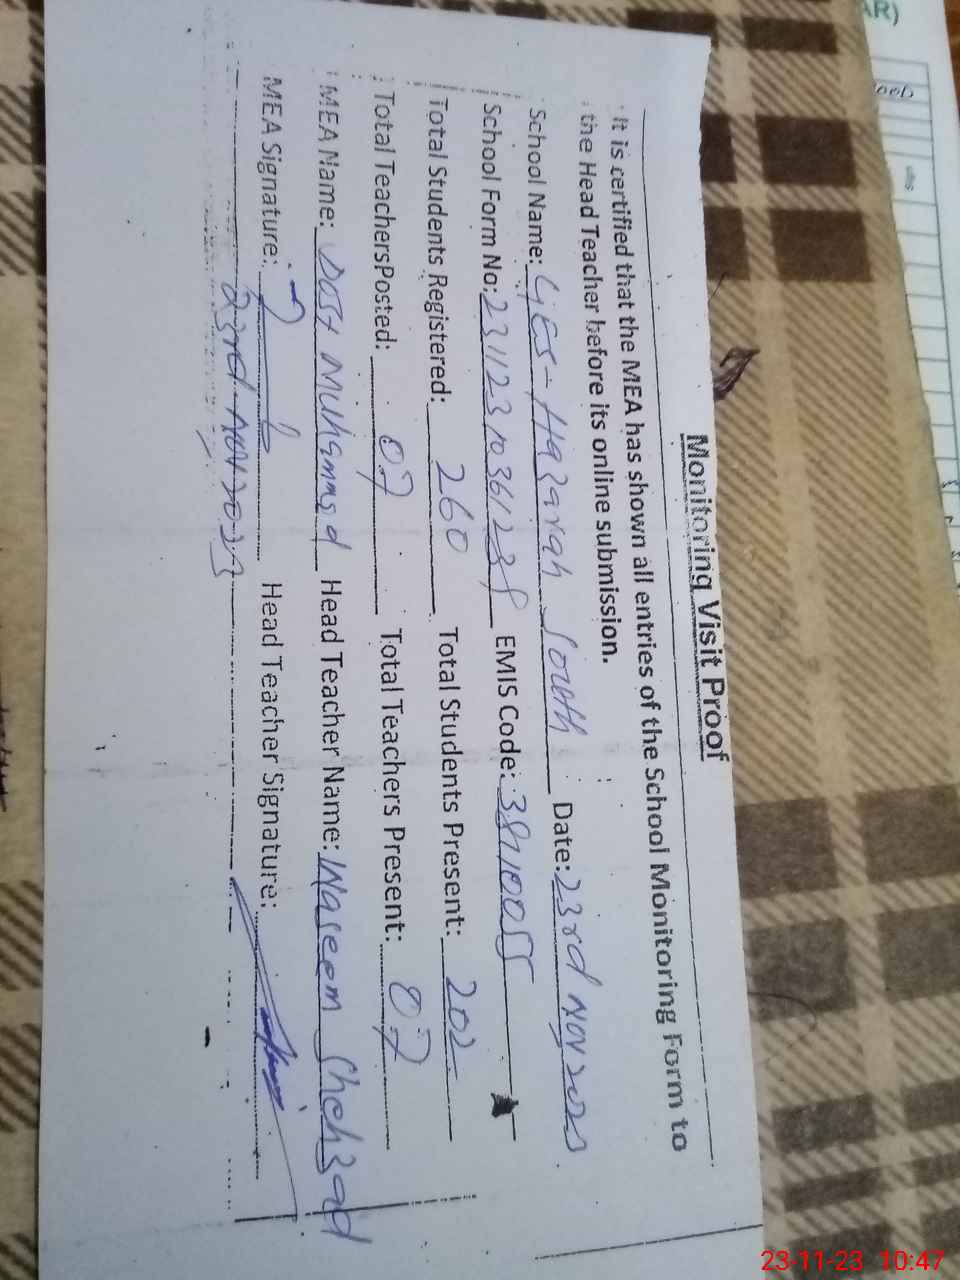 Monitoring Visit Proof
It is certified that the MEA has shown all entries of the School Monitoring Form to
the Head Teacher before its online submission.
School Name: GES-Hazarah South Date: 23rd Nov 2023
School Form No: 23112310361238 EMIS Code: 38110055
Total Students Registered: 260 Total Students Present: 202
Total TeachersPosted: 07 Total Teachers Present: 07
MEA Name: Dost Muhammad Head Teacher Name: Waseem Shehzad
MEA Signature: Head Teacher Signature:
23rd-Nov 2023
AR)
23-11-23 10:47